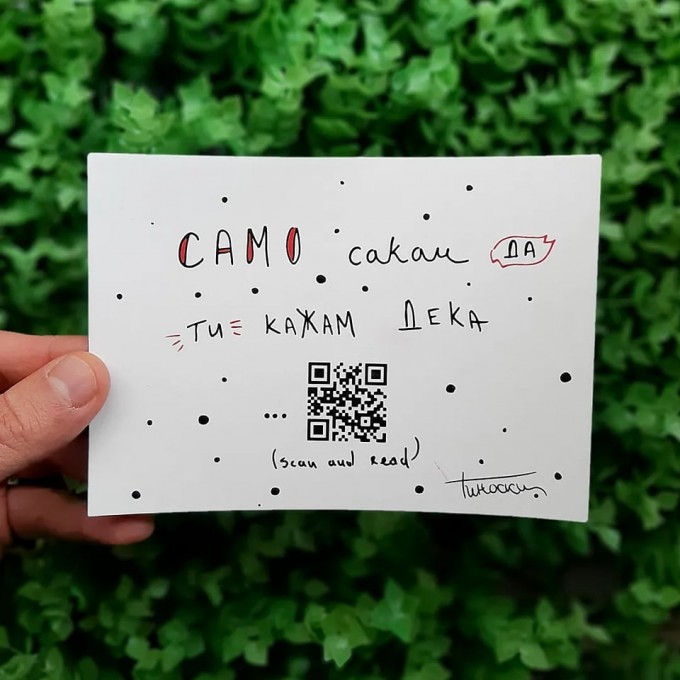 САМО сакам ДА
ТИ КАЖАМ ДЕКА
...
(scan and read)
Тиноски